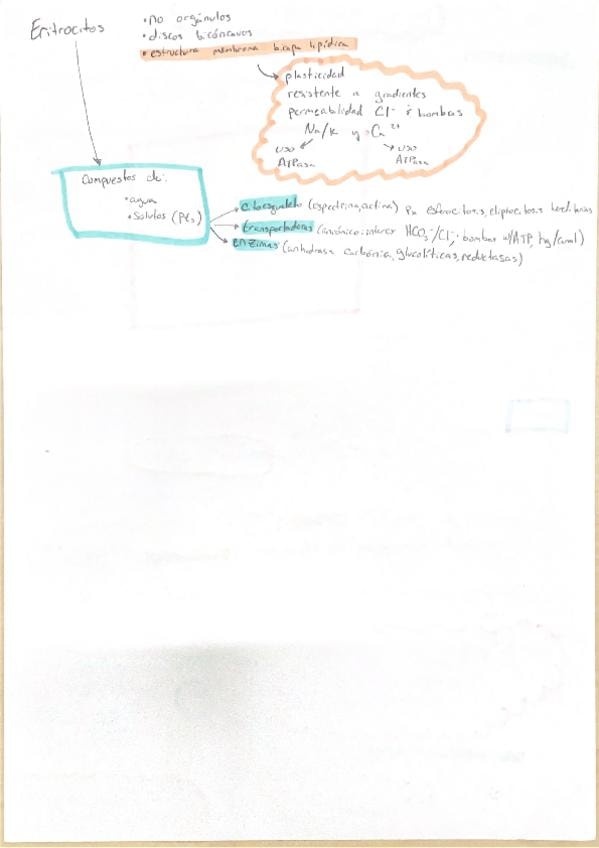 Eritrocitos
• no orgánulos
• discos bicóncavos
• estructura membrana bicapa lipídica
plasticidad
resistente a gradientes
permeabilidad Cl⁻ bombas
Na/K y Ca²⁺
uso ATPasa
uso ATPasa
Compuestos de:
• agua
• Solutos
citoesqueleto (espectrina, actina) esferocitosis, eliptocitosis hereditarias
transportadoras HCO₃⁻/Cl⁻; bombas ATP,
Enzimas (anhidrasa carbónica, glucolíticas, reductasas)